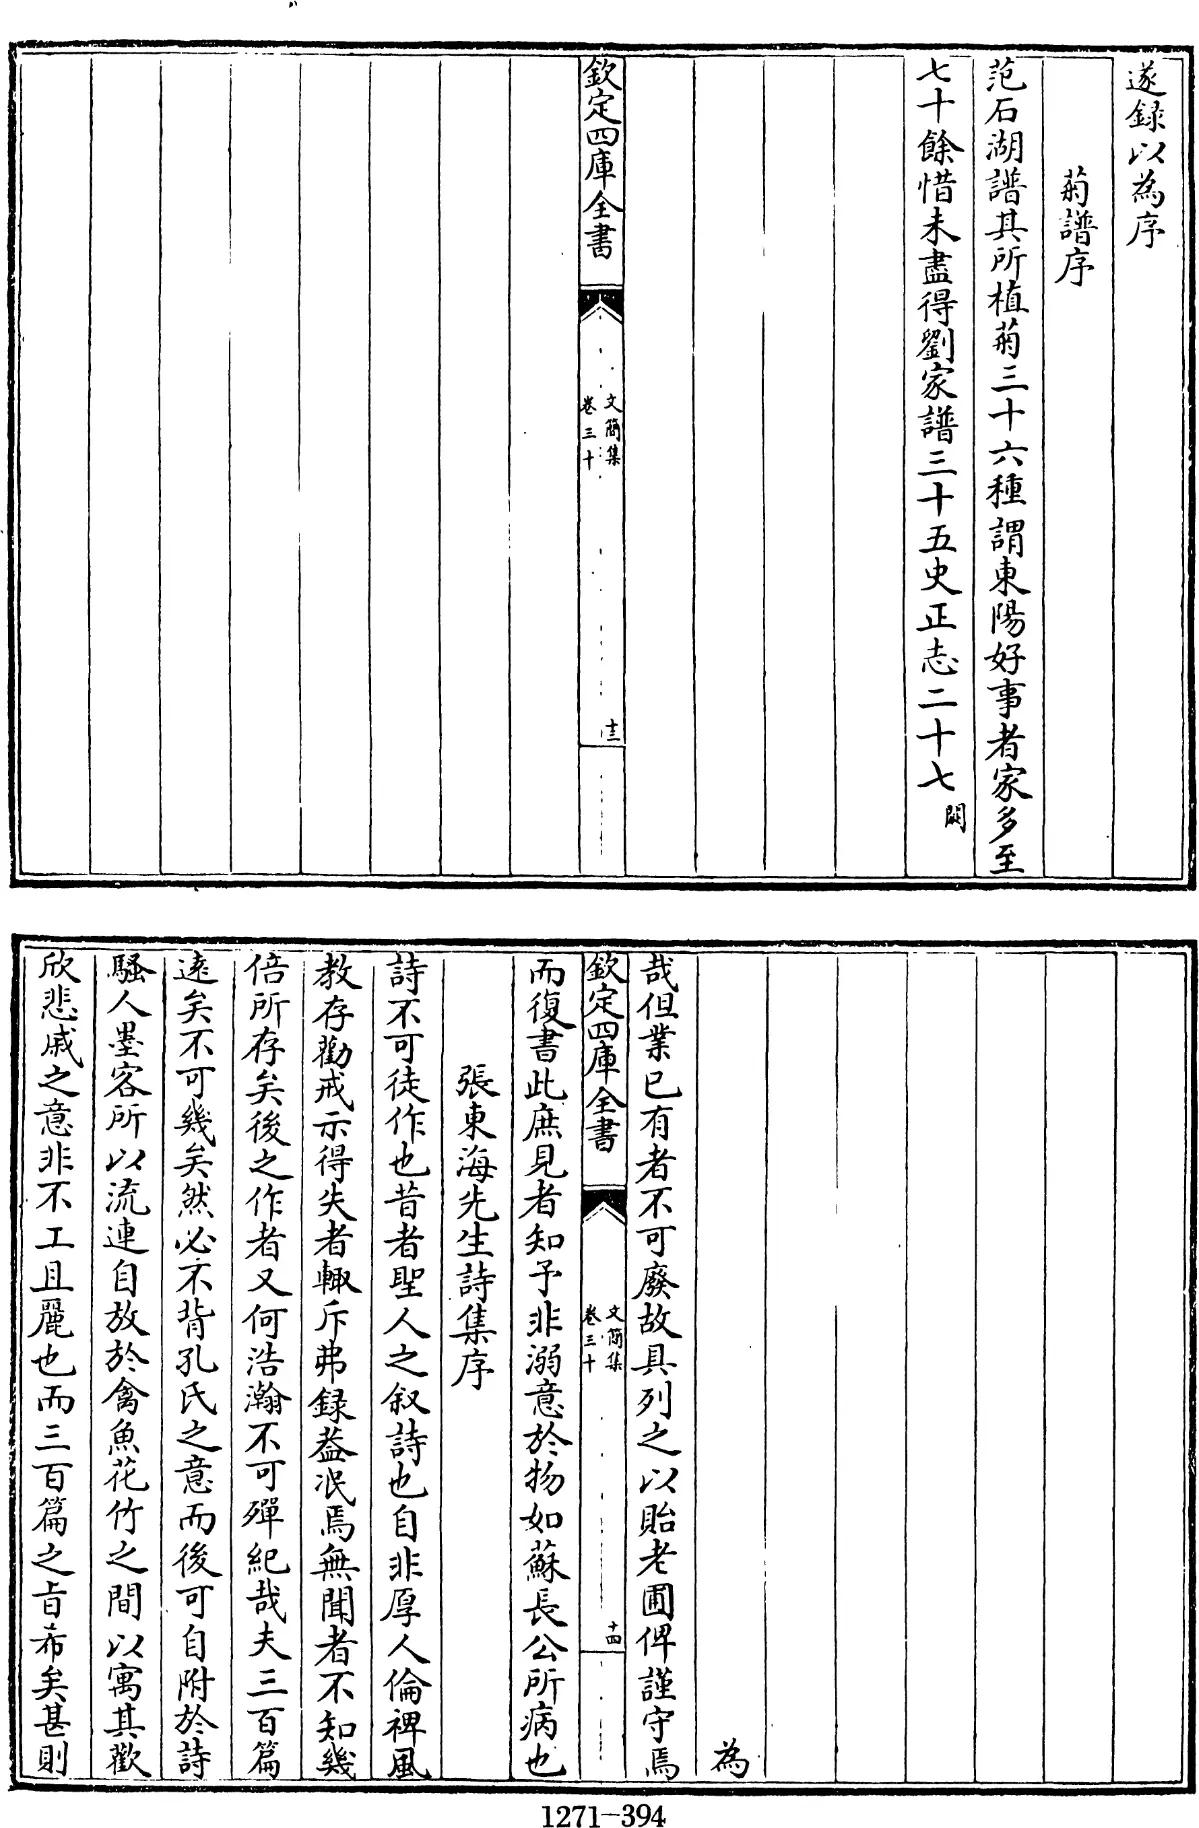 遂録以為序
菊譜序
范石湖譜其所植菊三十六種謂東陽好事者家多至
七十餘惜未盡得劉家譜三十五史正志二十七闕
欽定四庫全書
文簡集
卷三十
十三
為
哉但業已有者不可廢故具列之以貽老圃俾謹守焉
欽定四庫全書
文簡集
卷三十
十四
而復書此庶見者知予非溺意於物如蘇長公所病也
張東海先生詩集序
詩不可徒作也昔者聖人之叙詩也自非厚人倫裨風
教存勸戒示得失者輙斥弗録葢泯焉無聞者不知幾
倍所存矣後之作者又何浩瀚不可殫紀哉夫三百篇
遠矣不可幾矣然必不背孔氏之意而後可自附於詩
騷人墨客所以流連自放於禽魚花竹之間以寓其歡
欣悲戚之意非不工且麗也而三百篇之旨希矣甚則
1271-394